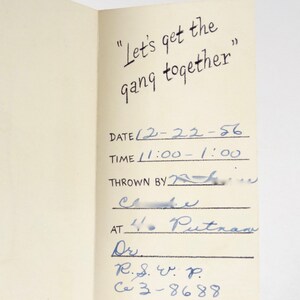 "Let's get the
gang together"
DATE 12-22-56
TIME 11:00-1:00
THROWN BY
AT 46 Putnam
Dr.
R.S.V.P.
Ce 3-8688